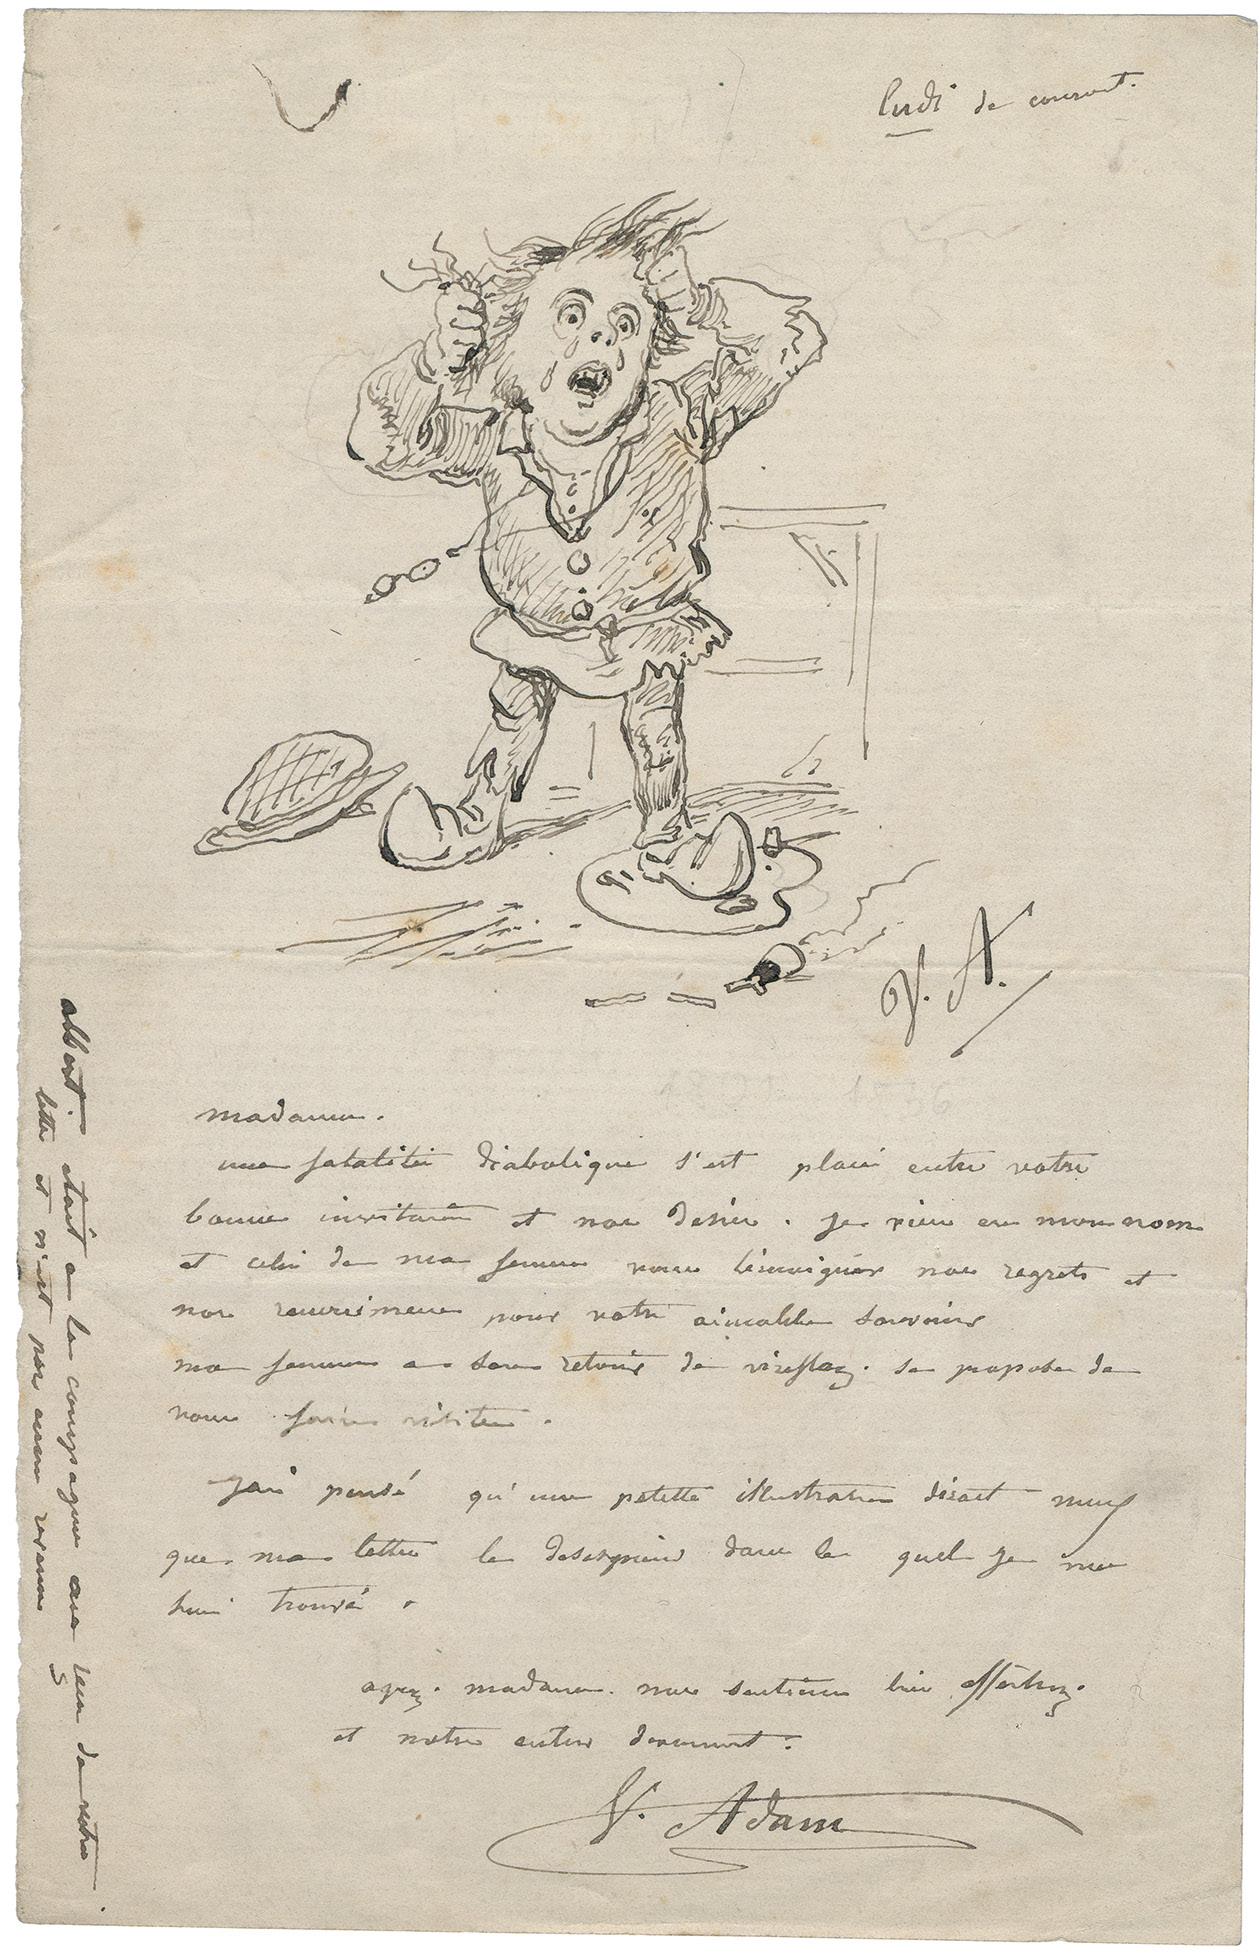 lundi de courant.
V. A.
madame.
une fatalité diabolique s'est placé entre votre
bonne invitation et nos desirs. je viens en mon nom
et celui de ma femme vous témoigner nos regrets et
nos remerciements pour votre aimable souvenir
ma femme a son retour de viroflay. se propose de
vous faire visite.
J'ai pensé qu'une petite illustration disait mieux
que ma lettre le desespoir dans le quel je me
suis trouvé.
agréez. madame. nos sentiments bien affectueux.
et notre entier devouement.
V. Adam
albert etait a la campagne au reçu de votre
lettre et n'est pas encore revenu